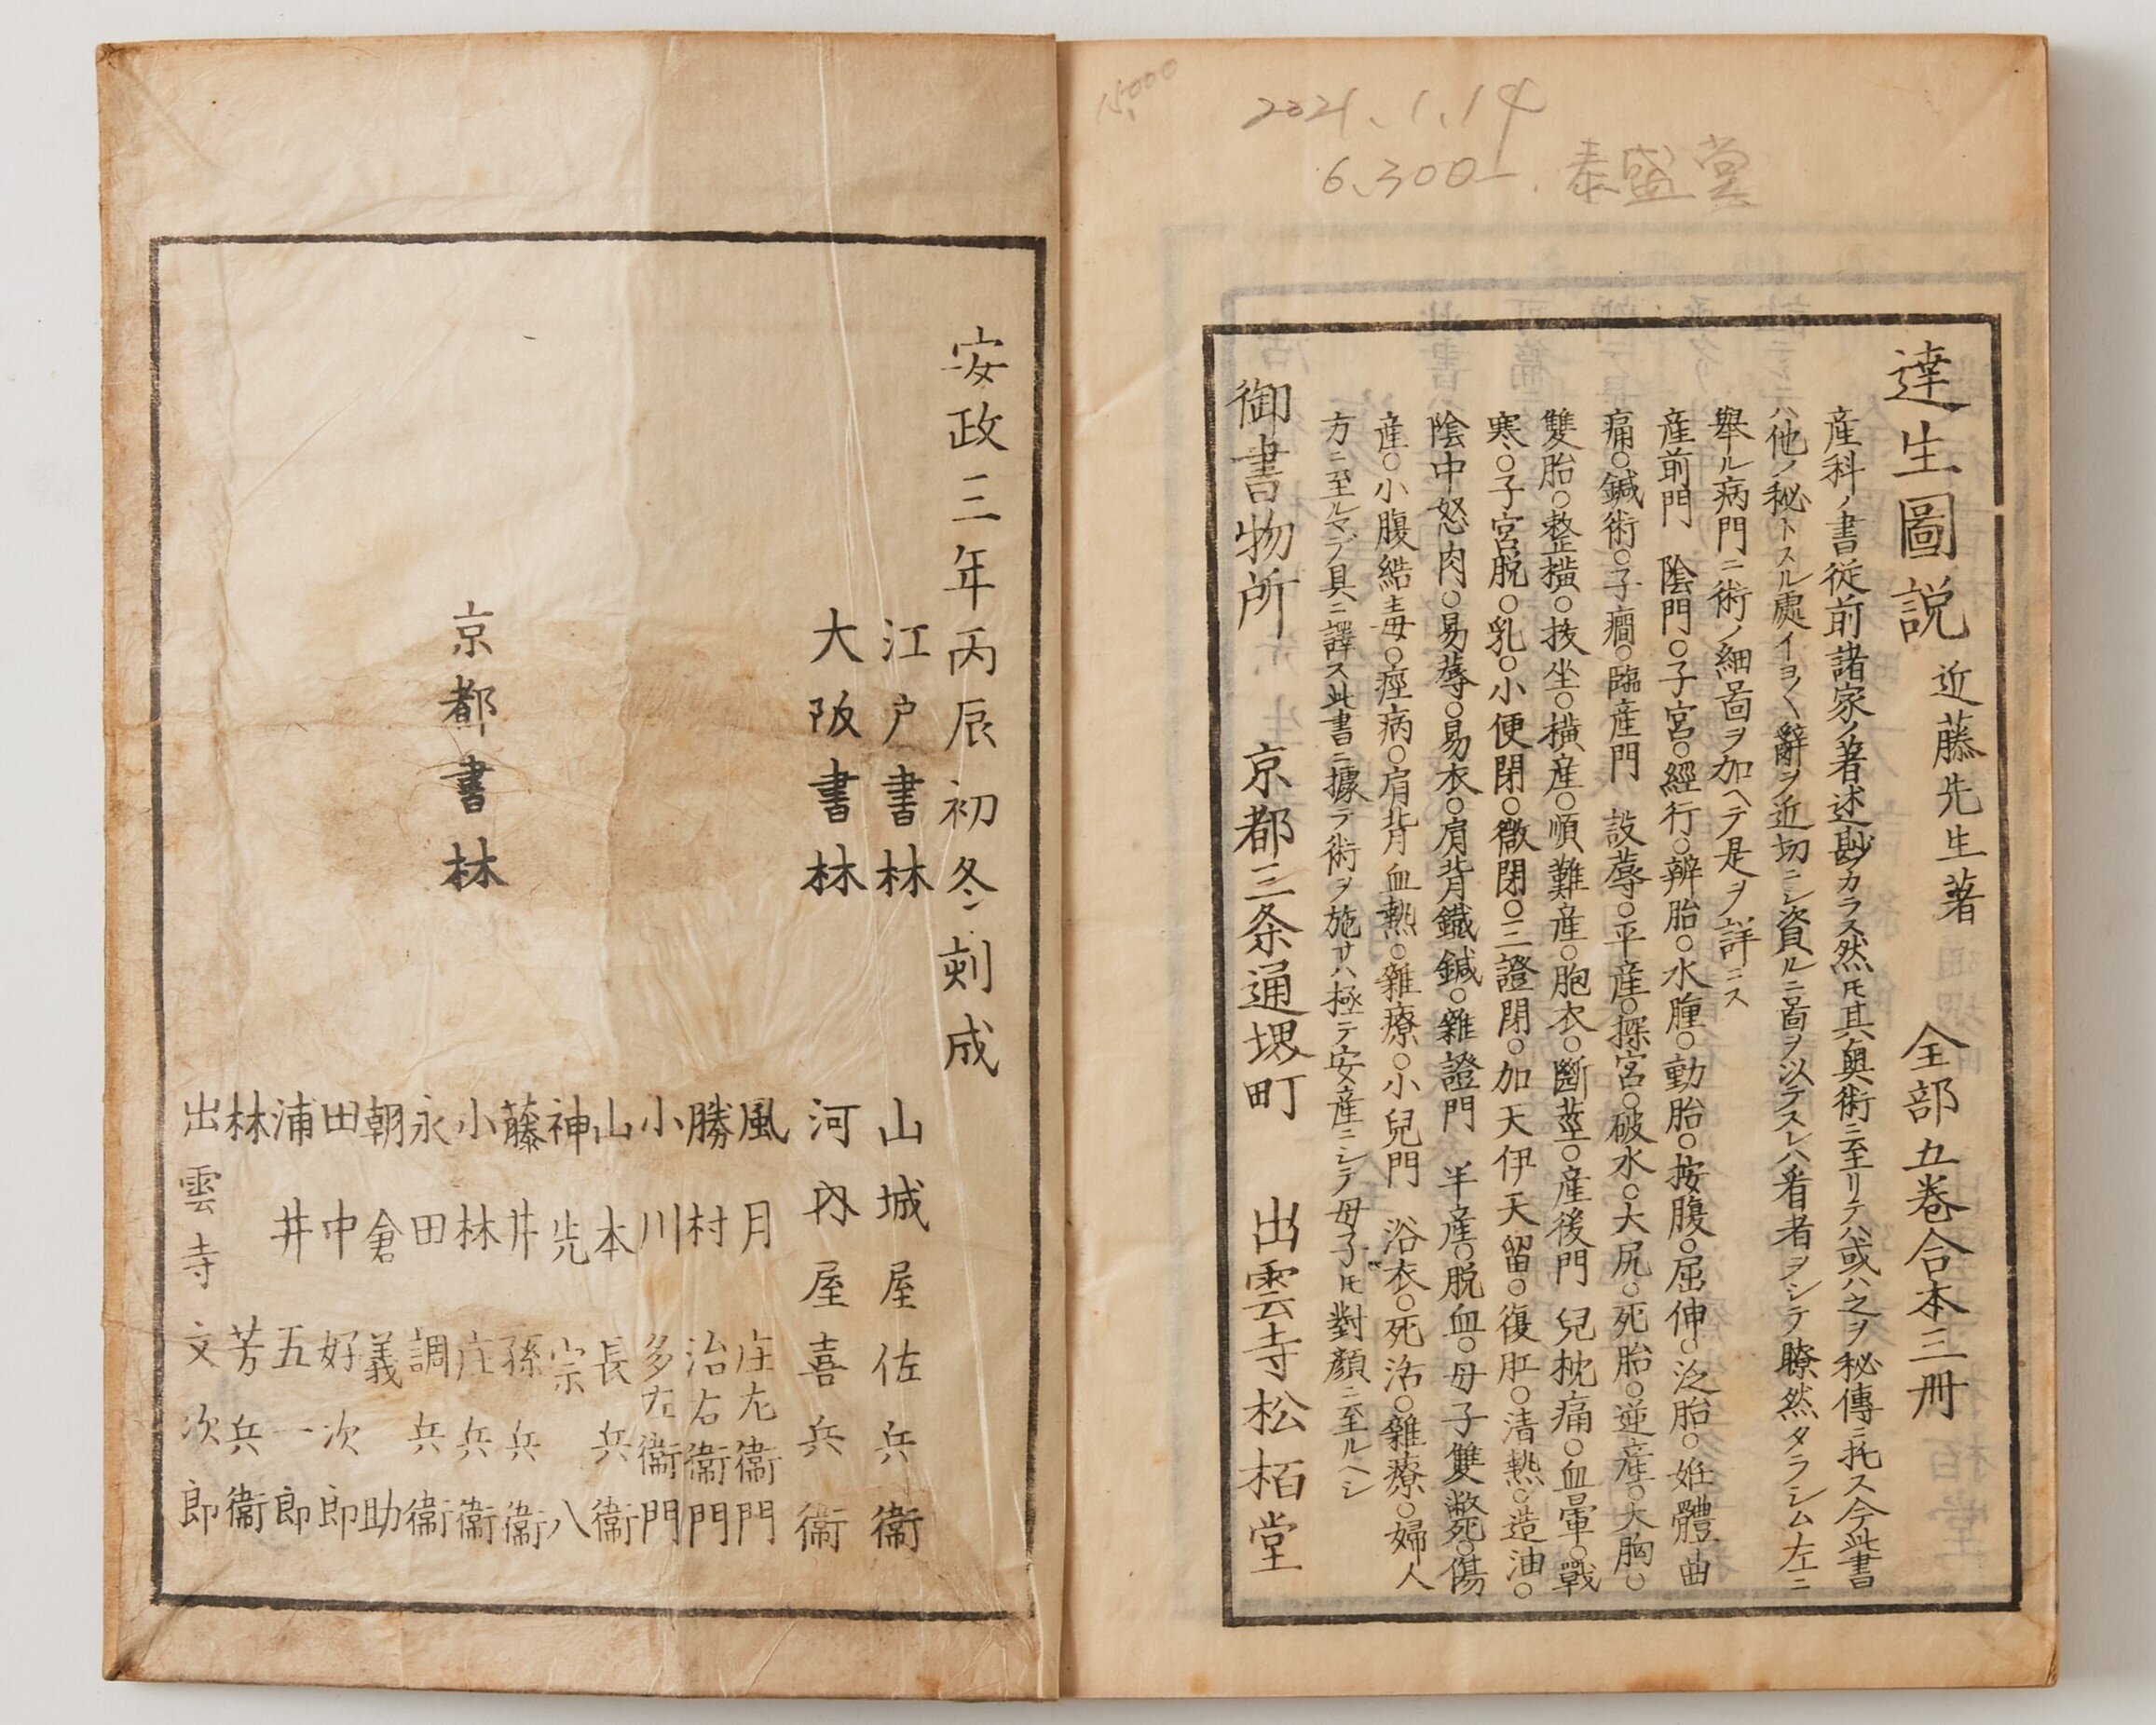 15,000
2021.1.14
6,300-. 泰盛堂
達生圖説 近藤先生著 全部五巻合本三冊
産科ノ書從前諸家ノ著述尠カラス然𪜈其奥術ニ至リテハ或ハ之ヲ秘傳ニ托ス今此書
ハ他ノ秘トスル處イヨ〱辭ヲ近切ニシ資ルニ啚ヲ以テスレハ看者ヲシテ瞭然タラシム左ニ
舉ル病門ニ術ノ細啚ヲ加ヘテ是ヲ詳ニス
産前門 陰門○子宮○經行○辨胎○水腫○動胎○按腹○屈伸○泛胎○妊體曲
痛○鍼術○子癇○臨産門 設蓐○平産○探宮○破水○大尻○死胎○逆産○大胸○
雙胎○整横○抜坐○横産○順難産○胞衣○斷莖○産後門 兒枕痛○血暈○戰
寒○子宮脱○乳○小便閉○徴閉○三證閉○加天伊天留○復肛○清熱○造油○
陰中怒肉○易蓐○易衣○肩背鐵鍼○雜證門 半産○脱血○母子雙斃死○傷
産○小腹結毒○痙病○肩背血熱○雜療○小兒門 浴衣○死活○雜療○婦人
方ニ至ルマデ具ニ譯ス此書ニ據テ術ヲ施サハ極テ安産ニシテ母子𪜈對顔ニ至ルヘシ
御書物所 京都三条通堺町 出雲寺松栢堂
安政三年丙辰初冬刻成
江戸書林 山城屋佐兵衞
大阪書林 河内屋喜兵衞
京都書林
風月庄左衞門
勝村治右衞門
小川多左衞門
山本長兵衞
神先宗八
藤井孫兵衞
小林庄兵衞
永田調兵衞
朝倉義助
田中好次郎
浦井五一郎
林芳兵衞
出雲寺文次郎